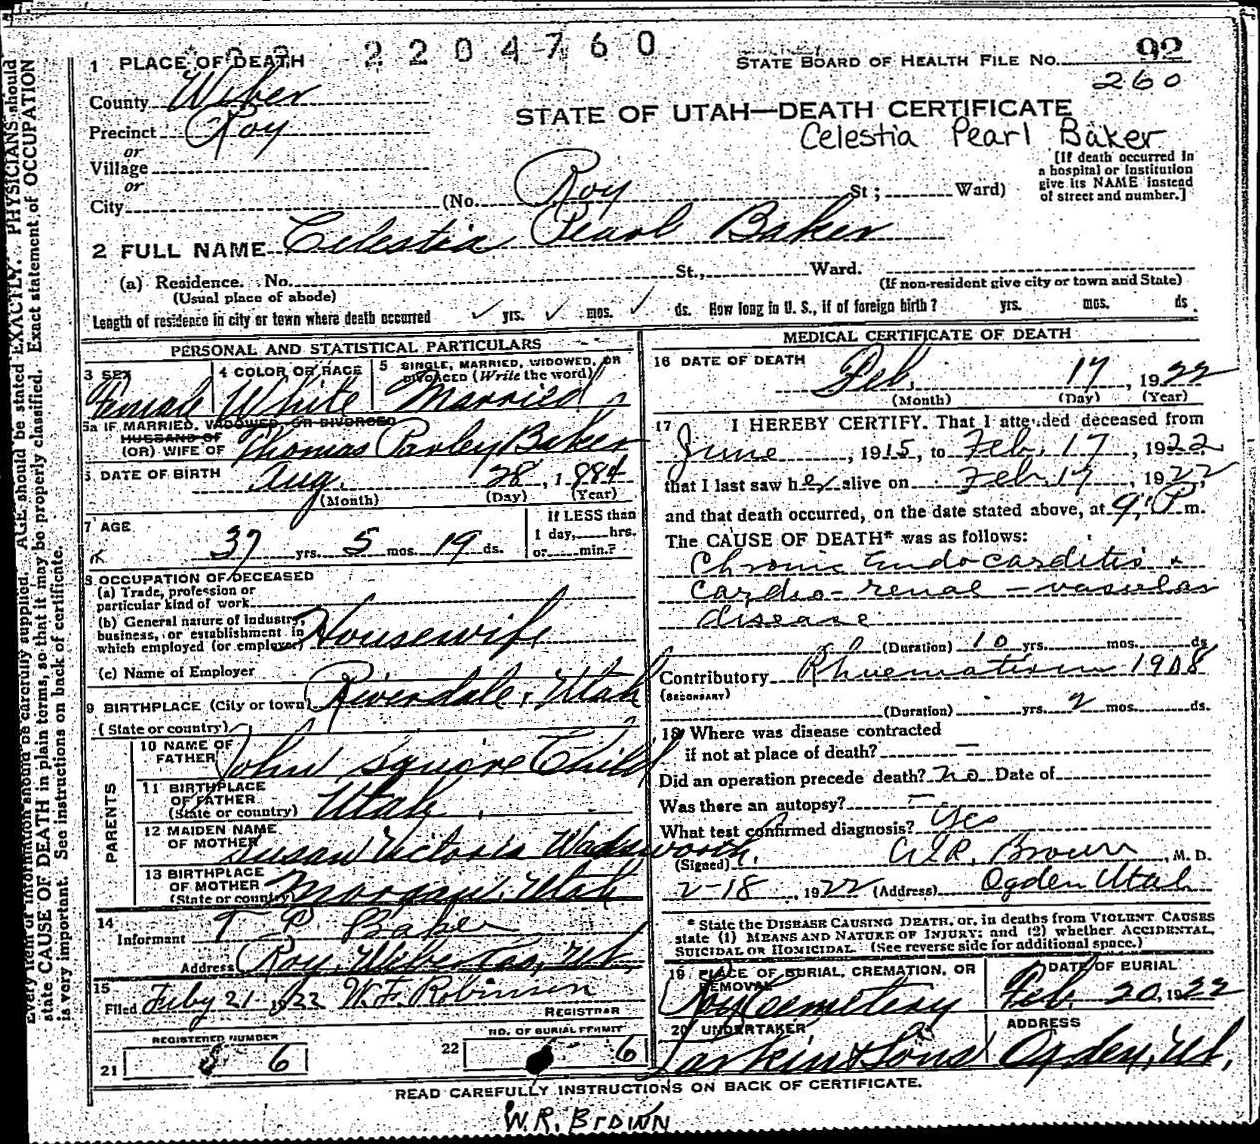 2204760
92
1 PLACE OF DEATH
STATE BOARD OF HEALTH FILE No.
260
County Weber
STATE OF UTAH—DEATH CERTIFICATE
Precinct Roy
Celestia Pearl Baker
or
Village
or
[If death occurred in
a hospital or institution
give its NAME instead
of street and number.]
City (No. Roy St; Ward)
2 FULL NAME Celestia Pearl Baker
(a) Residence. No. St., Ward.
(Usual place of abode)
(If non-resident give city or town and State)
Length of residence in city or town where death occurred ✓ yrs. ✓ mos. ✓ ds. How long in U. S., if of foreign birth? yrs. mos. ds
PERSONAL AND STATISTICAL PARTICULARS
3 SEX
Female
4 COLOR OR RACE
White
5 SINGLE, MARRIED, WIDOWED, OR
DIVORCED (Write the word)
Married
5a IF MARRIED, WIDOWED, OR DIVORCED
HUSBAND OF
(OR) WIFE OF Thomas Parley Baker
6 DATE OF BIRTH Aug. 28, 1884
(Month) (Day) (Year)
7 AGE
37 yrs. 5 mos. 19 ds.
If LESS than
1 day, hrs.
or min.?
8 OCCUPATION OF DECEASED
(a) Trade, profession or
particular kind of work
(b) General nature of industry,
business, or establishment in
which employed (or employer) Housewife
(c) Name of Employer
9 BIRTHPLACE (City or town) Riverdale, Utah
(State or country)
PARENTS
10 NAME OF
FATHER John Squire Child
11 BIRTHPLACE
OF FATHER
(State or country) Utah
12 MAIDEN NAME
OF MOTHER Susan Victoria Wadsworth.
13 BIRTHPLACE
OF MOTHER
(State or country) Morgan, Utah
14
Informant T P Baker
Address Roy, Weber Co, Ut.
15
Filed Feby 21 1922 W. F. Robinson
REGISTRAR
REGISTERED NUMBER
21 6
NO. OF BURIAL PERMIT
22 6
MEDICAL CERTIFICATE OF DEATH
16 DATE OF DEATH
Feb. 17, 1922
(Month) (Day) (Year)
17 I HEREBY CERTIFY. That I attended deceased from
June, 1915, to Feb. 17, 1922
that I last saw her alive on Feb. 17, 1922,
and that death occurred, on the date stated above, at 9 P m.
The CAUSE OF DEATH* was as follows:
Chronic Endocarditis &
Cardio-renal-vascular
disease
(Duration) 10 yrs. mos. ds
Contributory Rhuematism 1908
(SECONDARY)
(Duration) yrs. 2 mos. ds.
18 Where was disease contracted
if not at place of death? —
Did an operation precede death? no Date of
Was there an autopsy? —
What test confirmed diagnosis? Yes
(Signed) W.R. Brown, M. D.
2-18, 1922 (Address) Ogden Utah
* State the DISEASE CAUSING DEATH, or, in deaths from VIOLENT CAUSES
state (1) MEANS AND NATURE OF INJURY; and (2) whether ACCIDENTAL,
SUICIDAL OR HOMICIDAL. (See reverse side for additional space.)
19 PLACE OF BURIAL, CREMATION, OR
REMOVAL
Roy Cemetery
DATE OF BURIAL
Feb. 20, 1922
20 UNDERTAKER
Larkin & Sons
ADDRESS
Ogden, Ut.
READ CAREFULLY INSTRUCTIONS ON BACK OF CERTIFICATE.
W.R. BROWN
Every item of information should be carefully supplied. AGE should be stated EXACTLY. PHYSICIANS should
state CAUSE OF DEATH in plain terms, so that it may be properly classified. Exact statement of OCCUPATION
is very important. See instructions on back of certificate.